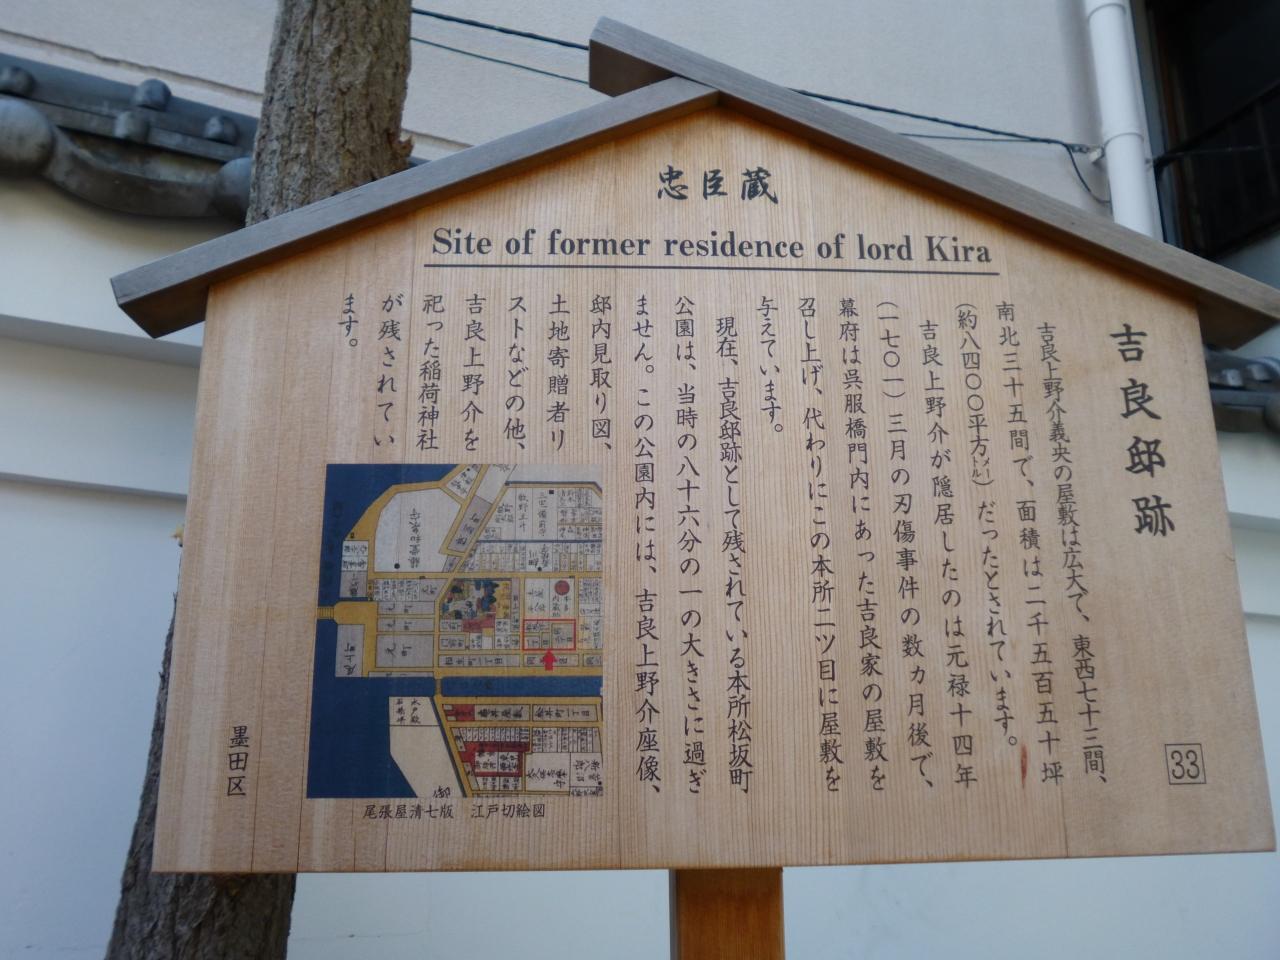 忠臣蔵
Site of former residence of lord Kira
吉良邸跡
33
吉良上野介義央の屋敷は広大で、東西七十三間、
南北三十五間で、面積は二千五百五十坪
(約八四〇〇平方メートル)だったとされています。
吉良上野介が隠居したのは元禄十四年
(一七〇一)三月の刃傷事件の数カ月後で、
幕府は呉服橋門内にあった吉良家の屋敷を
召し上げ、代わりにこの本所二ツ目に屋敷を
与えています。
現在、吉良邸跡として残されている本所松坂町
公園は、当時の八十六分の一の大きさに過ぎ
ません。この公園内には、吉良上野介座像、
邸内見取り図、
土地寄贈者リ
ストなどの他、
吉良上野介を
祀った稲荷神社
が残されてい
ます。
尾張屋清七版 江戸切絵図
墨田区